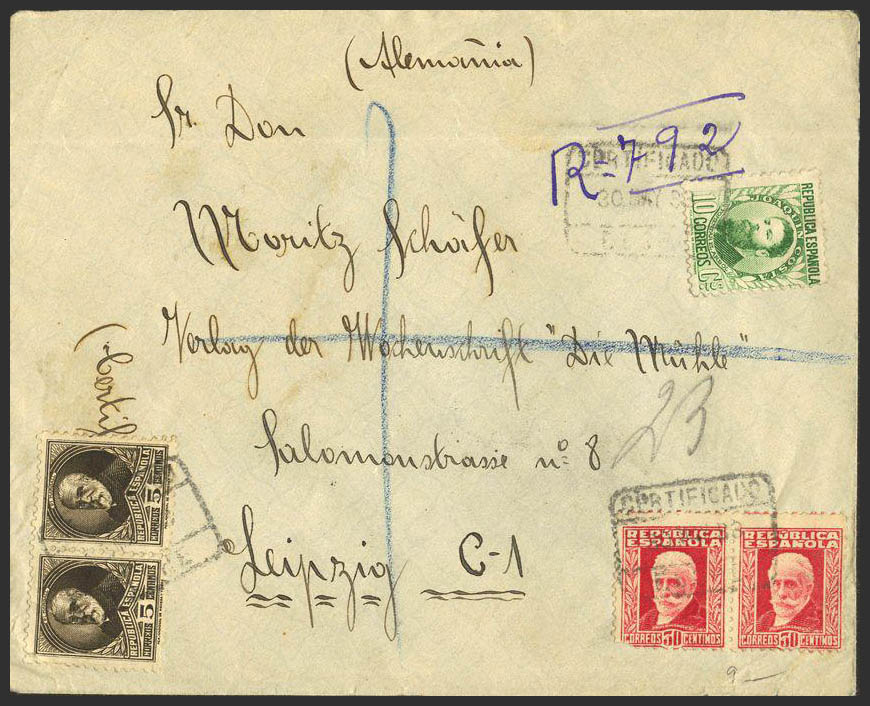 (Alemañia)
Sr. Don
R-792
CERTIFICADO
Moritz Schäfer
REPUBLICA ESPAÑOLA
JOAQUIN COSTA
10 CORREOS Cs
Verlag der Wochenschrift "Die Mühle"
(Certif
23
Salomonstrasse nº 8
Leipzig C-1
REPUBLICA ESPAÑOLA
CORREOS 5 CENTIMOS
REPUBLICA ESPAÑOLA
CORREOS 5 CENTIMOS
CERTIFICADO
REPÚBLICA ESPAÑOLA
CORREOS 30 CENTIMOS
REPÚBLICA ESPAÑOLA
CORREOS 30 CENTIMOS
9